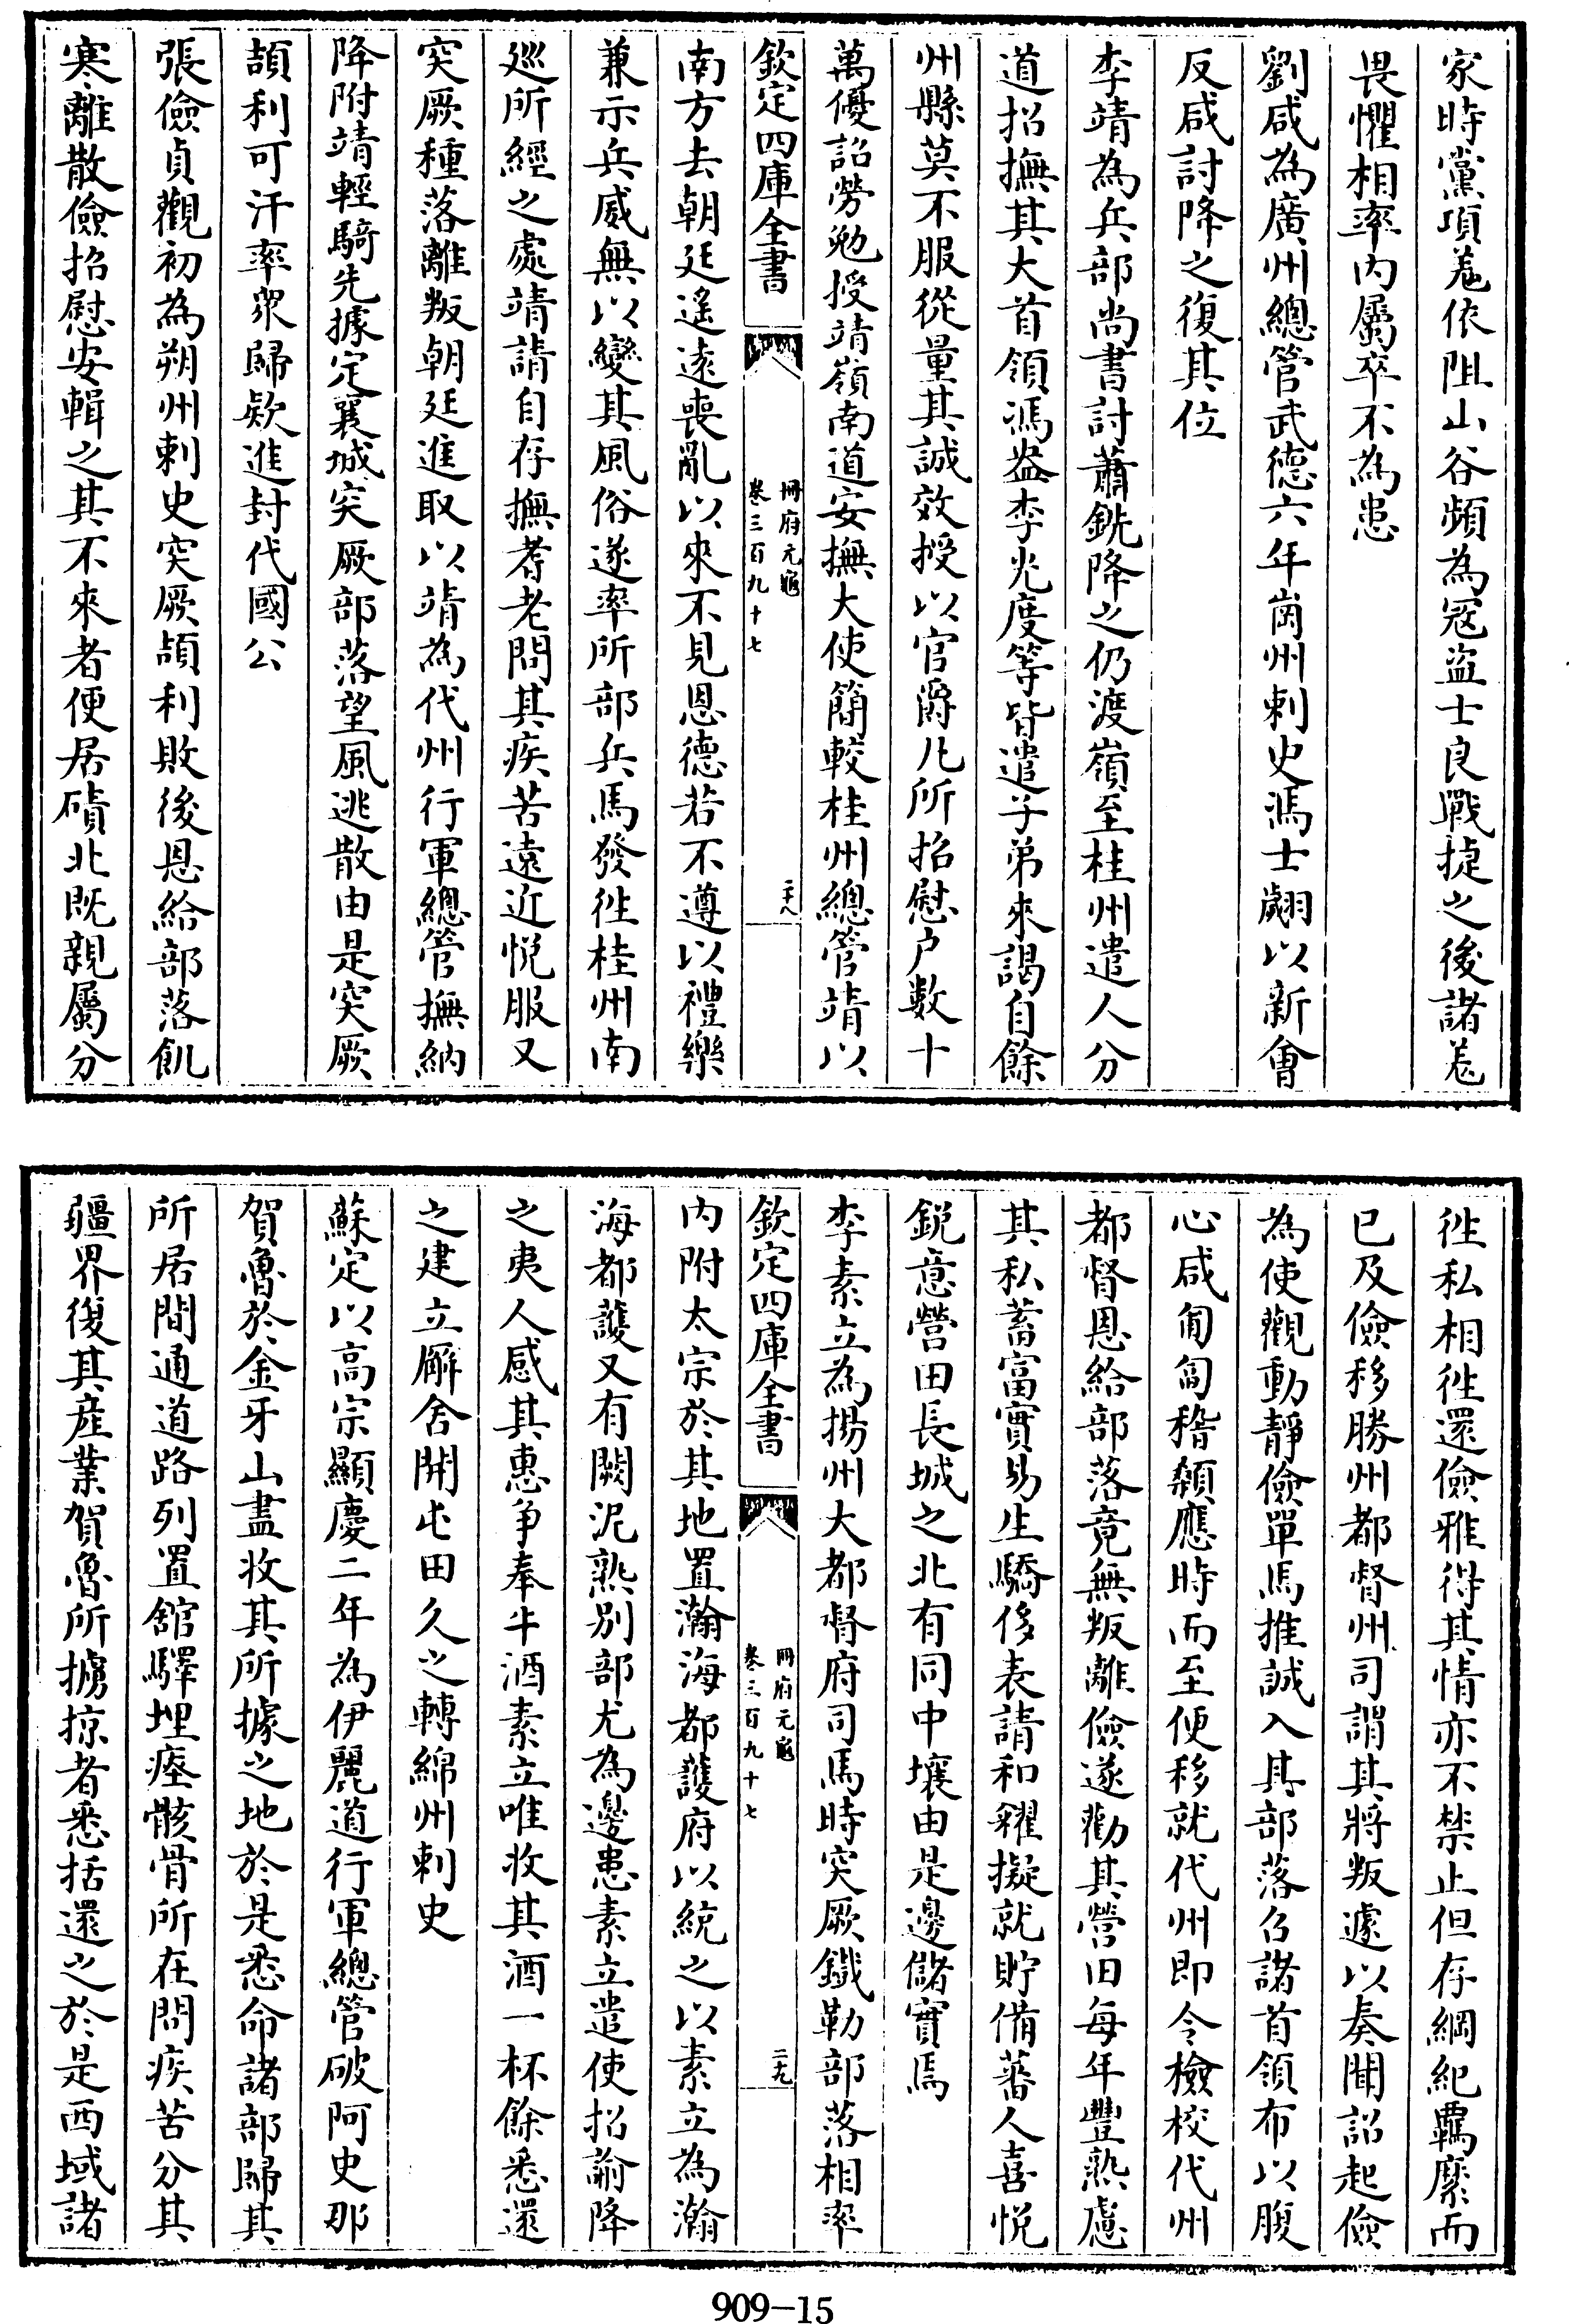 家時黨項羗依阻山谷頻為冦盜士良戰捷之後諸羗
畏懼相率内屬卒不為患
劉感為廣州總管武德六年崗州刺史馮士翽以新會
反感討降之復其位
李靖為兵部尚書討蕭銑降之仍渡嶺至桂州遣人分
道招撫其大首領馮盎李光度等皆遣子弟來謁自餘
州縣莫不服從量其誠效授以官爵凡所招慰户數十
萬優詔勞勉授靖嶺南道安撫大使簡較桂州總管靖以
欽定四庫全書
冊府元龜
卷三百九十七
二十八
南方去朝廷遙逺喪亂以來不見恩德若不遵以禮樂
兼示兵威無以變其風俗遂率所部兵馬發徃桂州南
巡所經之處靖請自存撫耆老問其疾苦遠近悦服又
突厥種落離叛朝廷進取以靖為代州行軍總管撫納
降附靖輕騎先據定襄城突厥部落望風逃散由是突厥
頡利可汗率衆歸欵進封代國公
張儉貞觀初為朔州刺史突厥頡利敗後思給部落飢
寒離散儉招慰安輯之其不來者便居磧北既親屬分
徃私相徃還儉雅得其情亦不禁止但存綱紀羈縻而
已及儉移勝州都督州司謂其將叛遽以奏聞詔起儉
為使觀動靜儉單馬推誠入其部落召諸首領布以腹
心咸匍匐稽顙應時而至便移就代州即令檢校代州
都督思給部落竟無叛離儉遂勸其營田每年豐熟慮
其私蓄富實易生驕侈表請和糴擬就貯備蕃人喜悦
鋭意營田長城之北有同中壤由是邊儲實焉
李素立為揚州大都督府司馬時突厥鐵勒部落相率
欽定四庫全書
冊府元龜
卷三百九十七
二十九
内附太宗於其地置瀚海都護府以統之以素立為瀚
海都護又有闕泥熟别部尤為邊患素立遣使招諭降
之夷人感其惠争奉牛酒素立唯收其酒一杯餘悉還
之建立廨舍開屯田久之轉綿州刺史
蘇定以高宗顯慶二年為伊麗道行軍總管破阿史那
賀魯於金牙山盡收其所據之地於是悉命諸部歸其
所居間通道路列置舘驛埋瘞骸骨所在問疾苦分其
疆界復其産業賀魯所擄掠者悉括還之於是西域諸
909-15